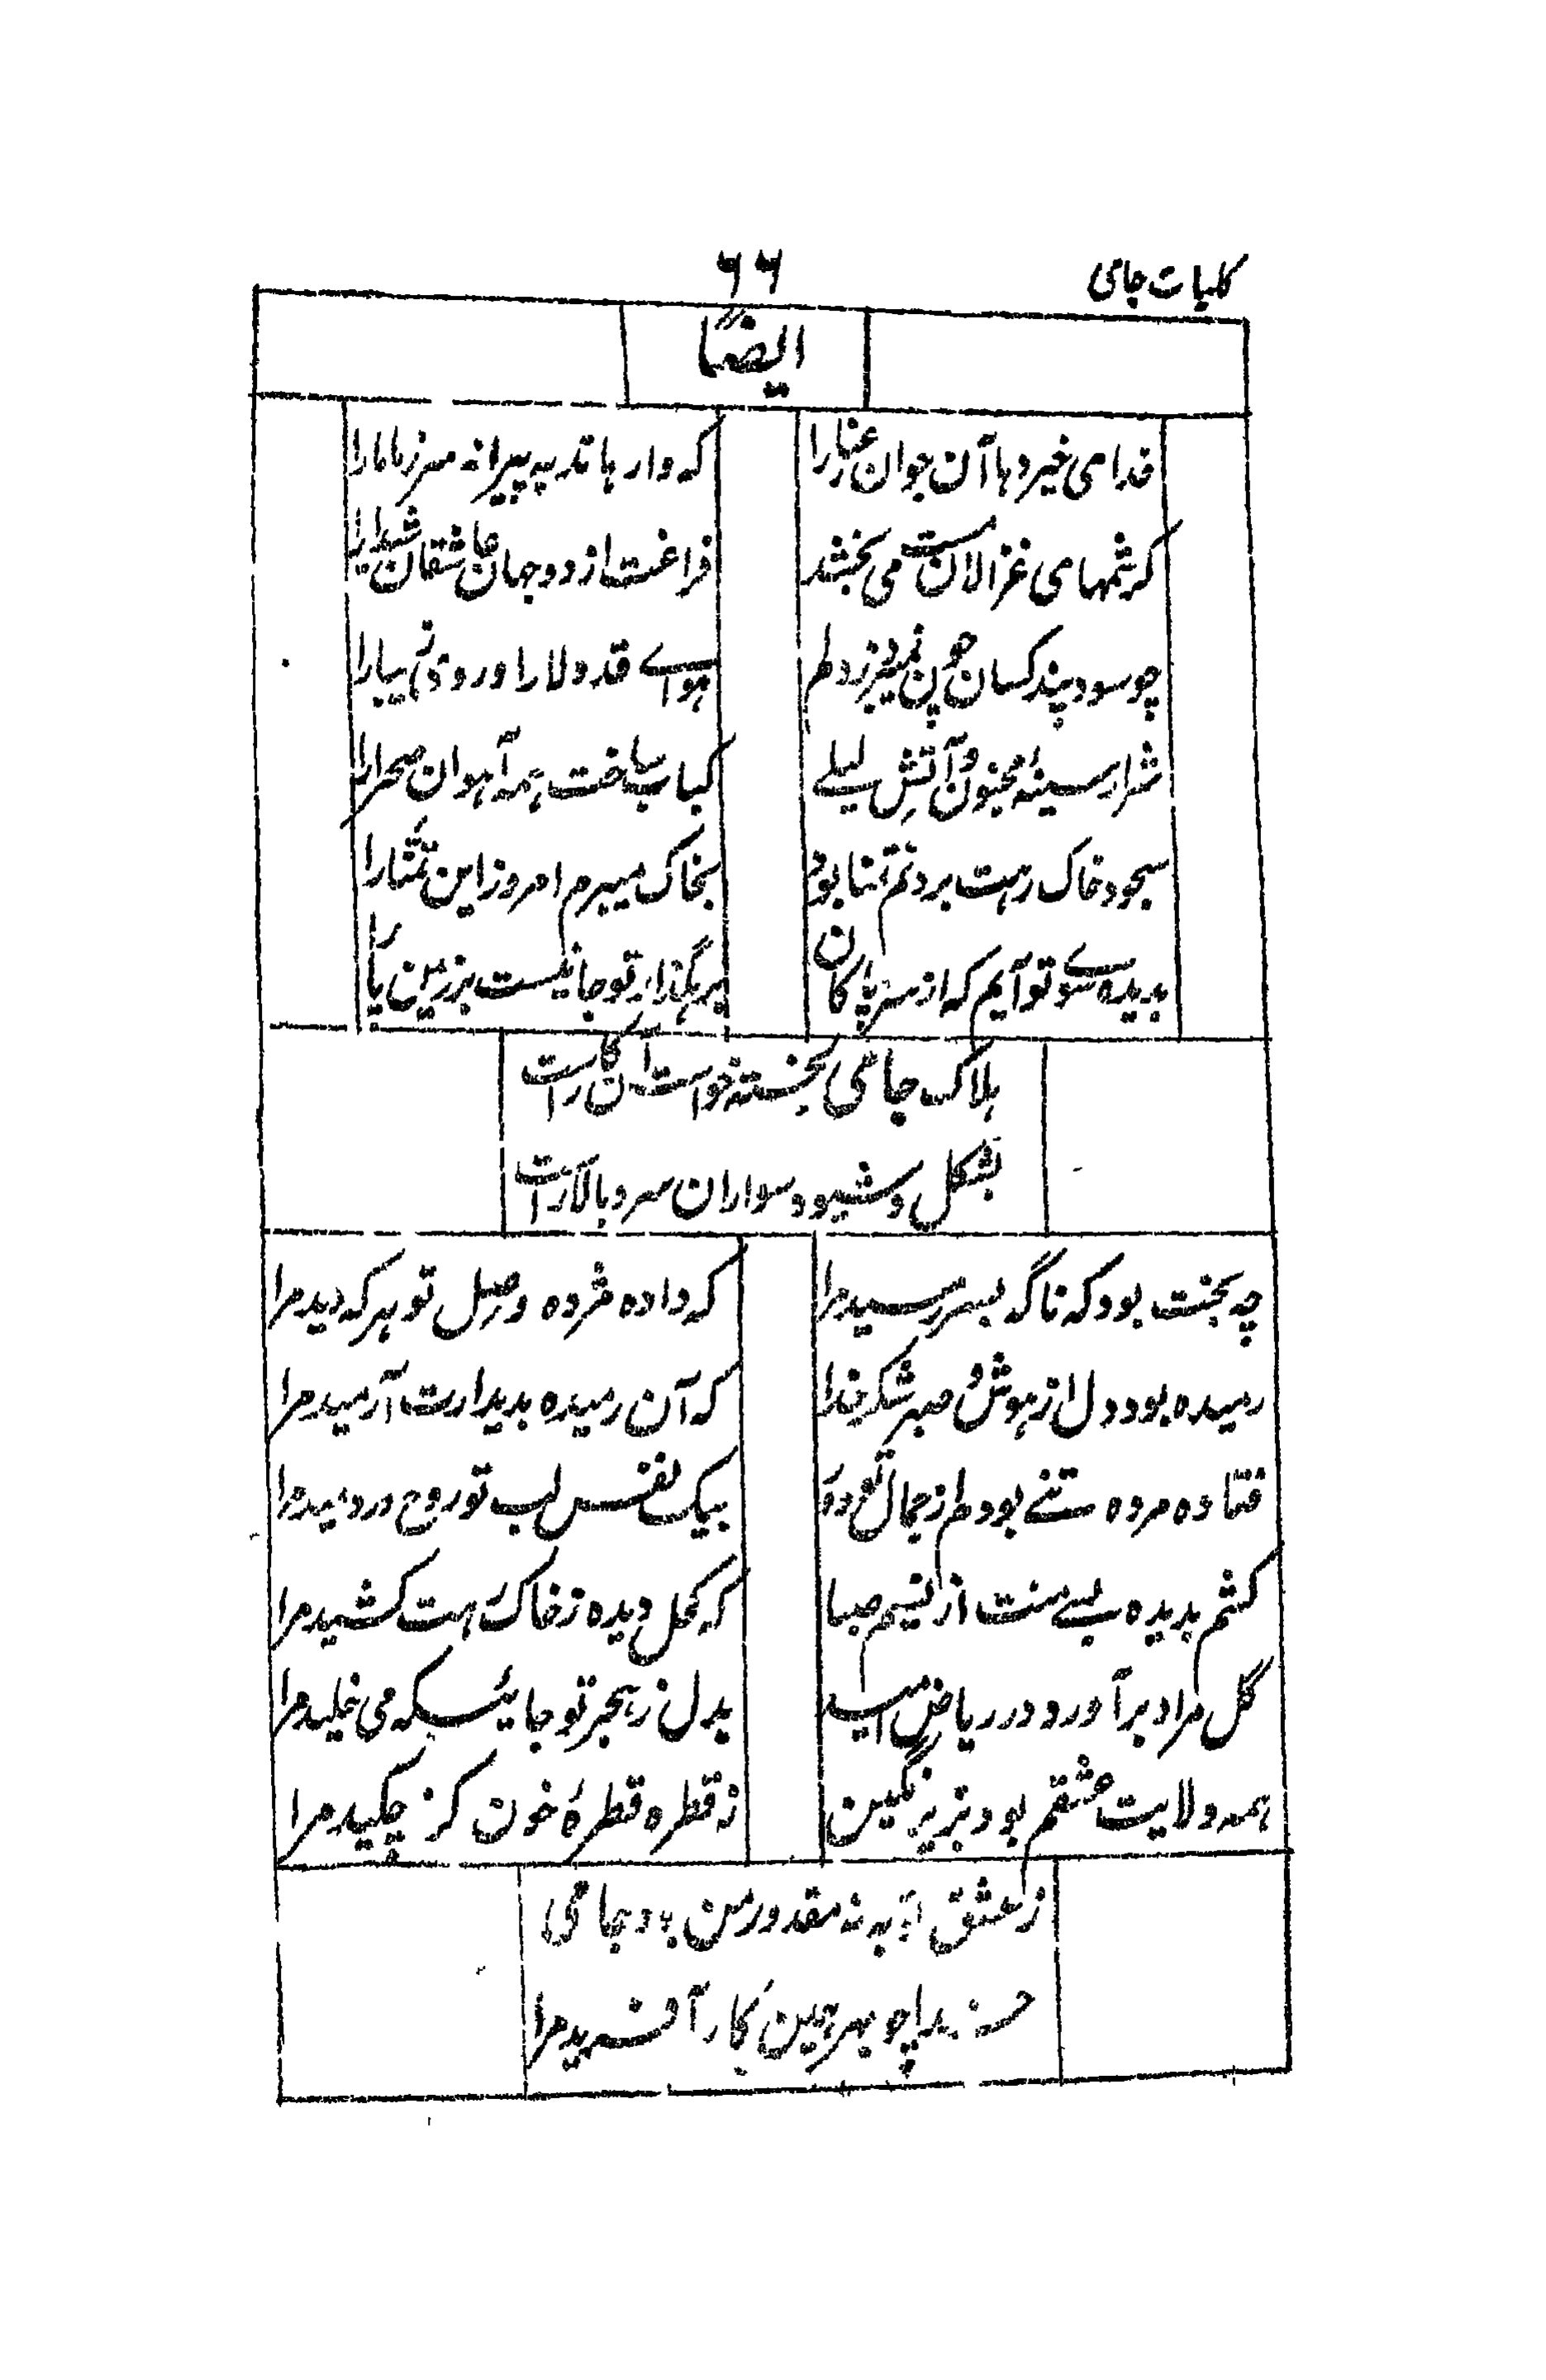 کلیات جامی
۶۶
ایضًا
فدای خیر دها آن جوان رعنا را
که وارهاند به پیرانه سر ز ما ما را
کرشمهای غزالان مست می بخشد
فراغت از دو جهان عاشقان شیدا را
چو سود پند کسان چون نمیبرد ز دلم
هوای قد دلارا و روی زیبا را
شرار سینهٔ مجنون و آتش لیلے
کباب ساخت همه آهوان صحرا را
سجود خاک رهت بردنم تمنا بود
بخاک میبرم امروز این تمنا را
بدیده سوے تو آیم که از سر پاکان
برهگذار تو جا نیست بر زمین پا را
هلاک جامی خسته خواست آن کاراست
بشکل و شیوه سواران سرو بالا را
چه بخت بود که ناگه بسر رسید مرا
که داده مژده وصل تو هر که دید مرا
رمیده بود دل از هوش و صبر شکر خدا
که آن رمیده بدیدارت آرمید مرا
فتاده مرده تنے بودم از جمال تو دور
بیک نفس لب تو روح در دمید مرا
کشم بدیده بسے منت از نسیم صبا
که کحل دیده ز خاک رهت کشید مرا
گل مراد بر آورد در ریاض امید
بدل ز هجر تو جائیکه می خلید مرا
همه ولایت عشقم بود بزیر نگین
ز قطره قطرهٔ خون کز چکید مرا
ز عشق توبه نه مقدور من بود جامی
خدا چو بهر همین کار آفرید مرا